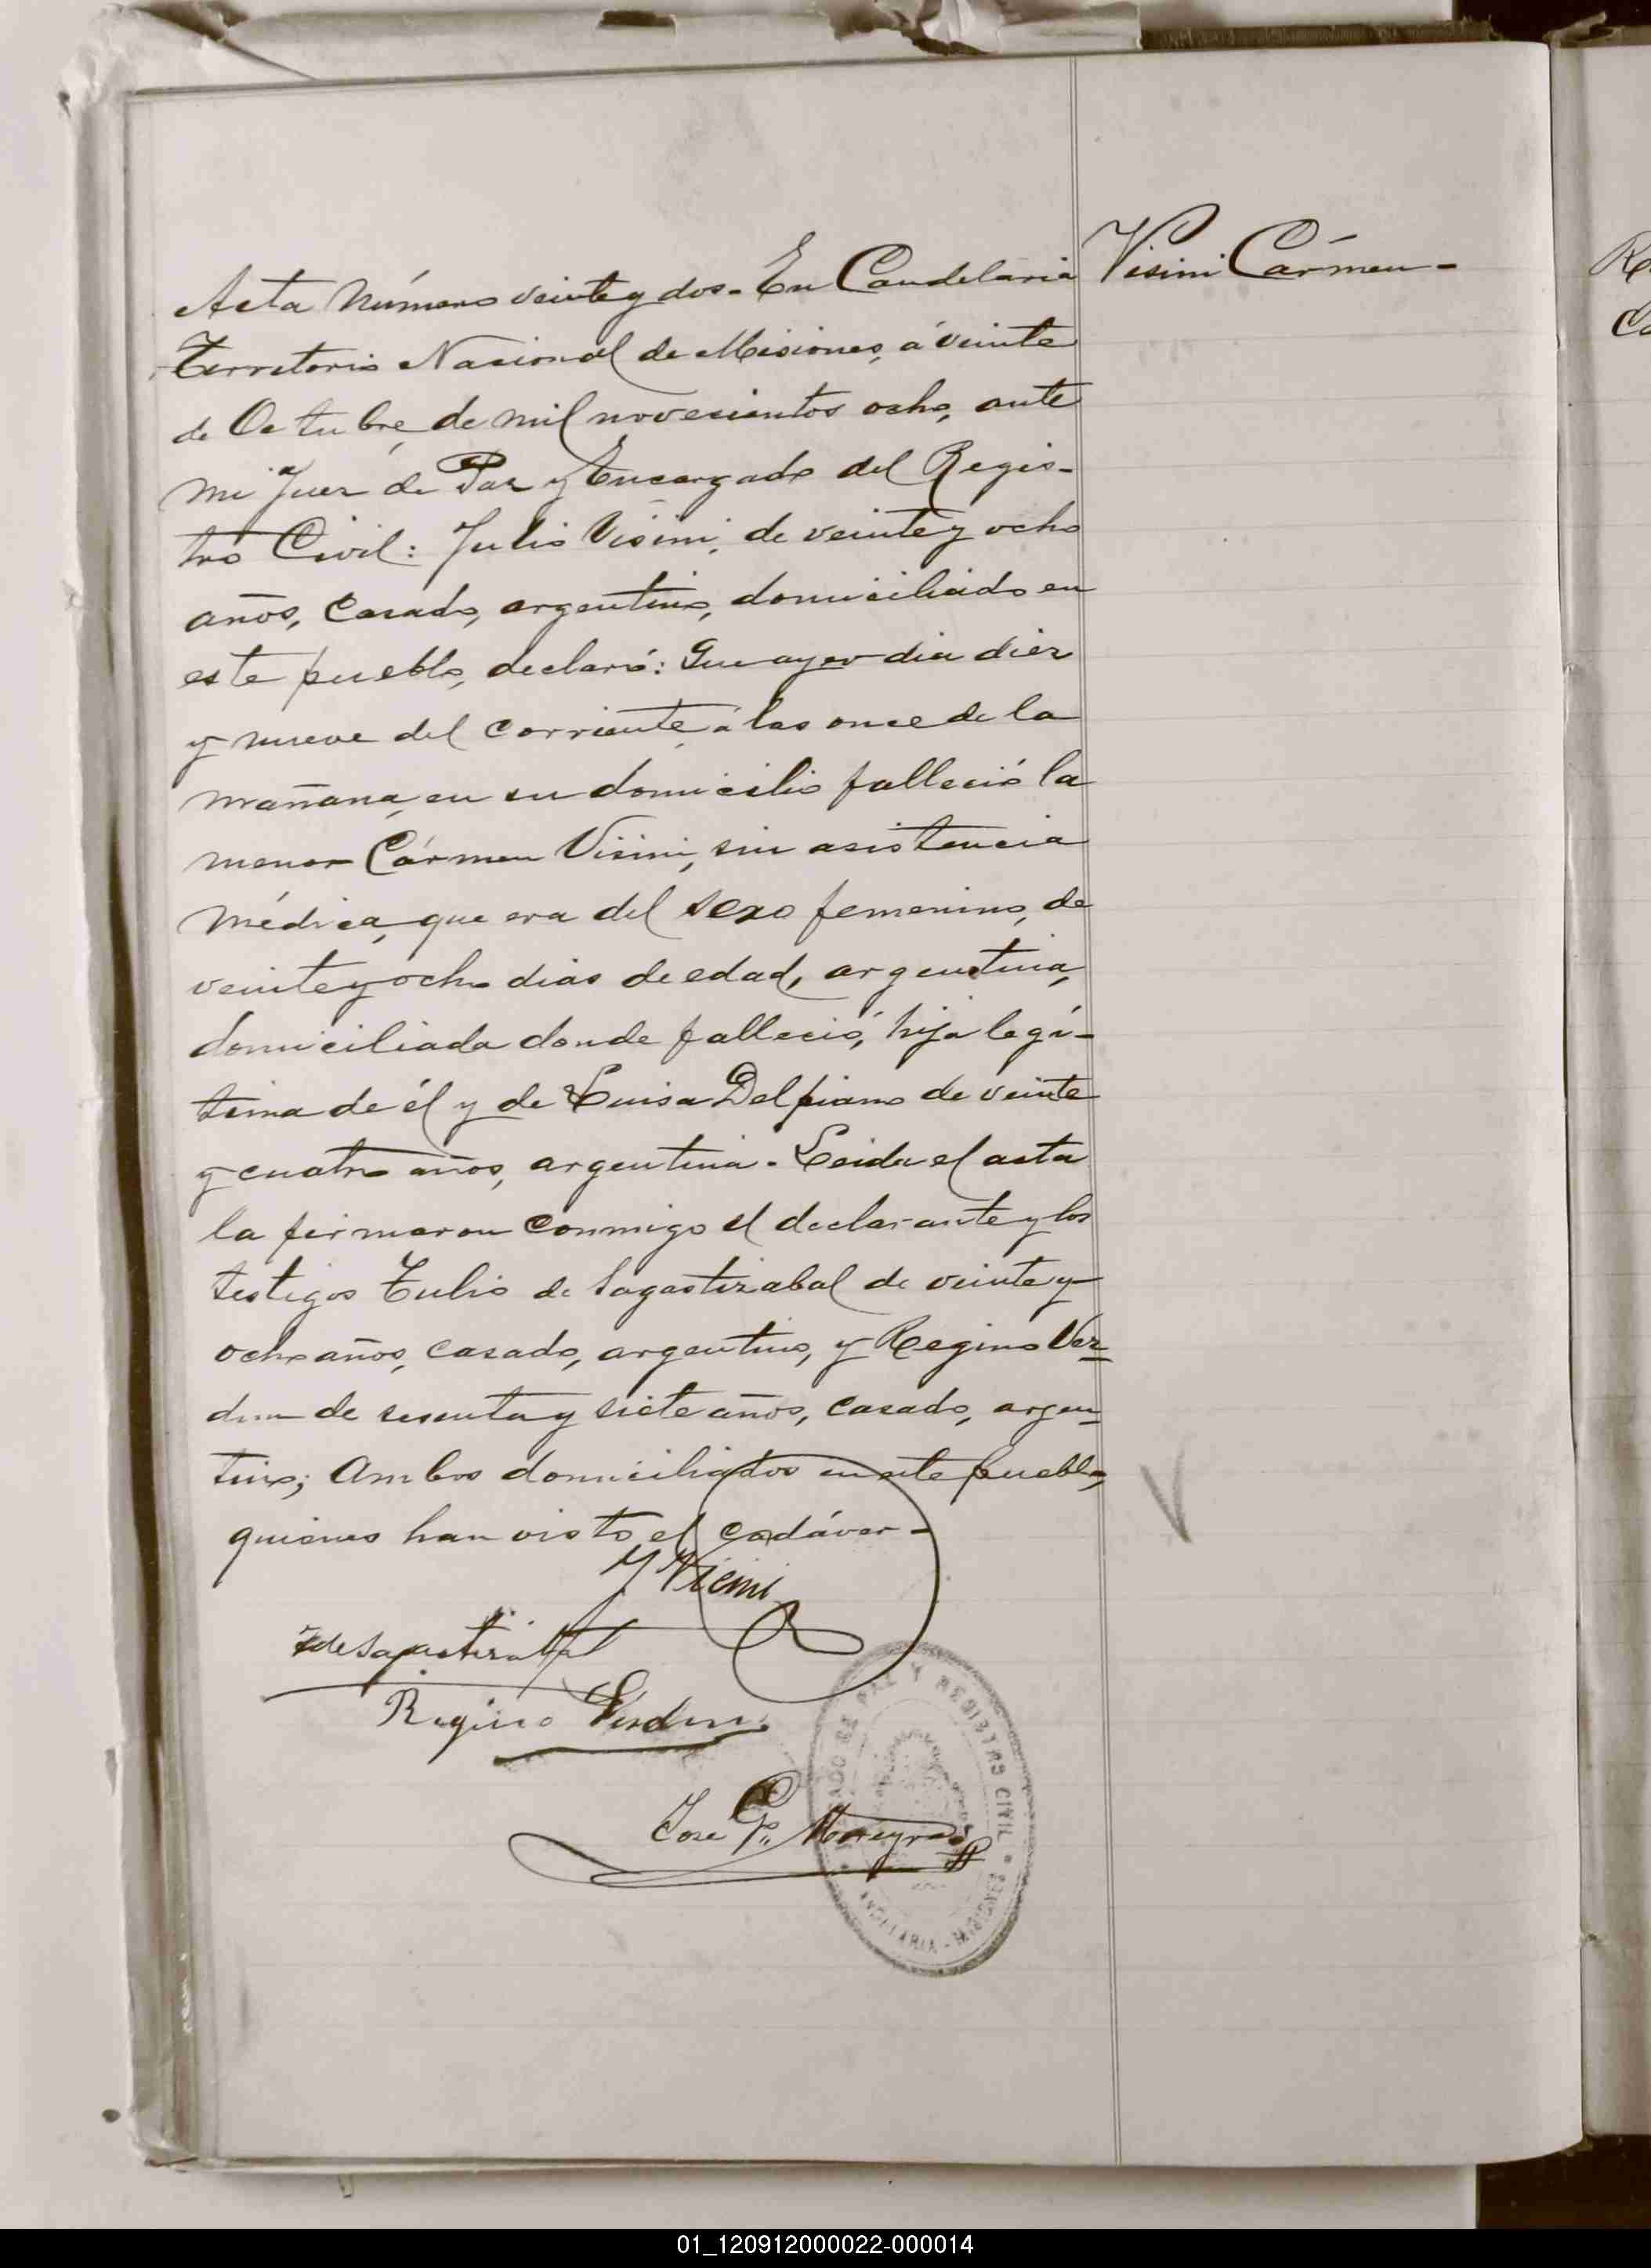 Visini Cármen-
Acta Número veinte y dos- En Candelaria
Territorio Nacional de Misiones, á veinte
de Octubre, de mil novecientos ocho, ante
mi Juez de Paz y Encargado del Regis-
tro Civil: Julio Visini, de veinte y ocho
años, casado, argentino, domiciliado en
este pueblo, declaró: Que ayer dia diez
y nueve del corriente á las once de la
mañana, en su domicilio falleció la
menor Cármen Visini, sin asistencia
médica, que era del sexo femenino, de
veinte y ocho dias de edad, argentina,
domiciliada donde falleció, hija legí-
tima de él y de Luisa Delpiano de veinte
y cuatro años, argentina. Leida el acta
la firmaron conmigo el declarante y los
testigos Tulio de Sagastizabal de veinte y
ocho años, casado, argentino, y Regino Ver-
dun de sesenta y siete años, casado, argen-
tino; ambos domiciliados en este pueblo,
quienes han visto el cadáver-
J Vicini
TdeSagastizabal
Regino Verdun
Jose P. Moreyra
JUZGADO DE PAZ Y REGISTRO CIVIL
CANDELARIA - MISIONES
Re
Ca
01_120912000022-000014